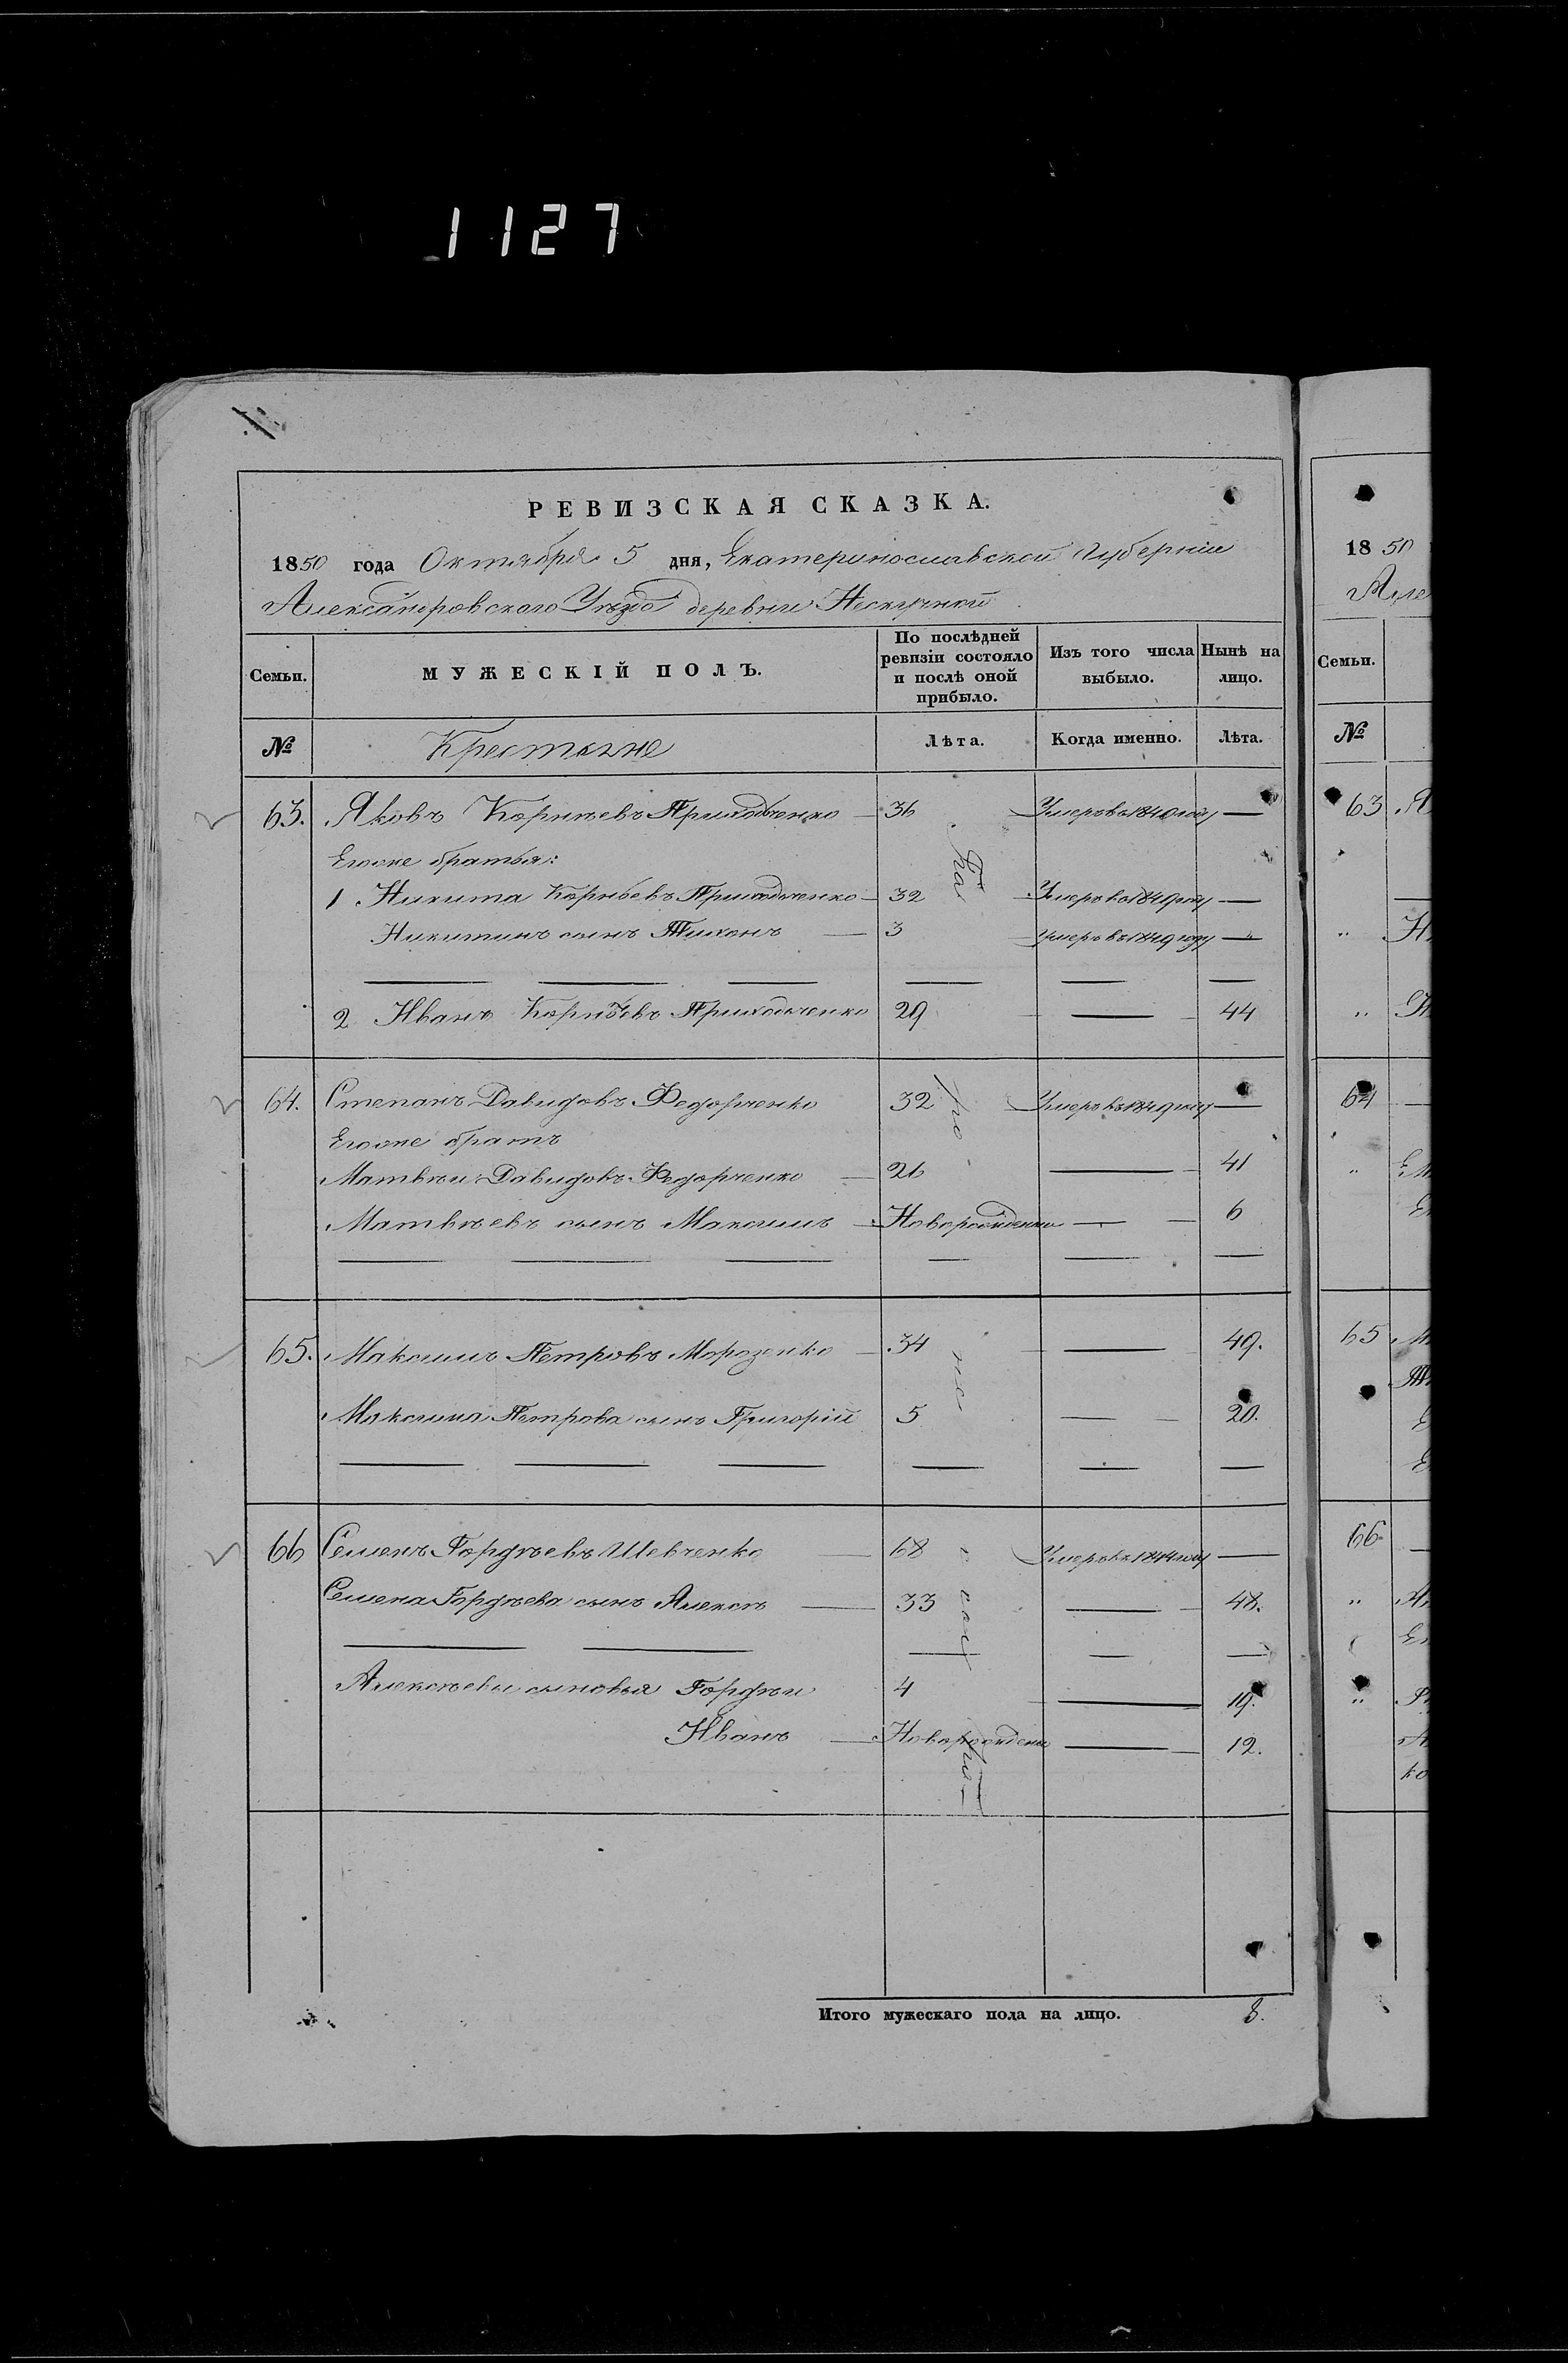 1127
РЕВИЗСКАЯ СКАЗКА.
1850 года Октября 5 дня, Екатеринославской Губернии
Александровского Уезда деревни Нескучной
Семьи. МУЖЕСКІЙ ПОЛЪ. По послѣдней ревизіи состояло и послѣ оной прибыло. Изъ того числа выбыло. Нынѣ на лицо.
№ Крестьяне Лѣта. Когда именно. Лѣта.
63. Яковъ Корнѣевъ Приходченко — 36 Умеръ въ 1840 году —
Егоже братья:
1 Никита Корнѣевъ Приходченко — 32 Умеръ въ 1849 году —
Никитинъ сынъ Тихонъ — 3 умеръ въ 1849 году —
2 Иванъ Корнѣевъ Приходченко 29 — 44
64. Степанъ Давидовъ Федорченко 32 Умеръ въ 1849 году —
Егоже братъ
Матвѣй Давидовъ Федорченко — 26 — 41
Матвѣевъ сынъ Максимъ — Новорожденный — 6
65. Максимъ Петровъ Морозенко — 34 — 49.
Максима Петрова сынъ Григорій 5 — 20.
66 Семенъ Гордѣевъ Шевченко — 68 Умеръ въ 1844 году —
Семена Гордѣева сынъ Алексѣй — 33 — 48.
Алексѣевы сыновья Гордѣй 4 — 19.
Иванъ — Новорожденный — 12.
Итого мужескаго пола на лицо. 8.
1850
Але
Семьи.
№
63 Я
64
65
66
ко